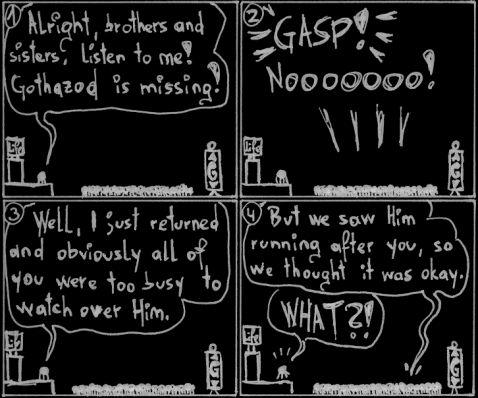 1
Alright, brothers and
sisters, listen to me!
Gothazod is missing!
2
GASP!
Nooooooo!
3
Well, I just returned
and obviously all of
you were too busy to
watch over Him.
4
But we saw Him
running after you, so
we thought it was okay.
WHAT?!